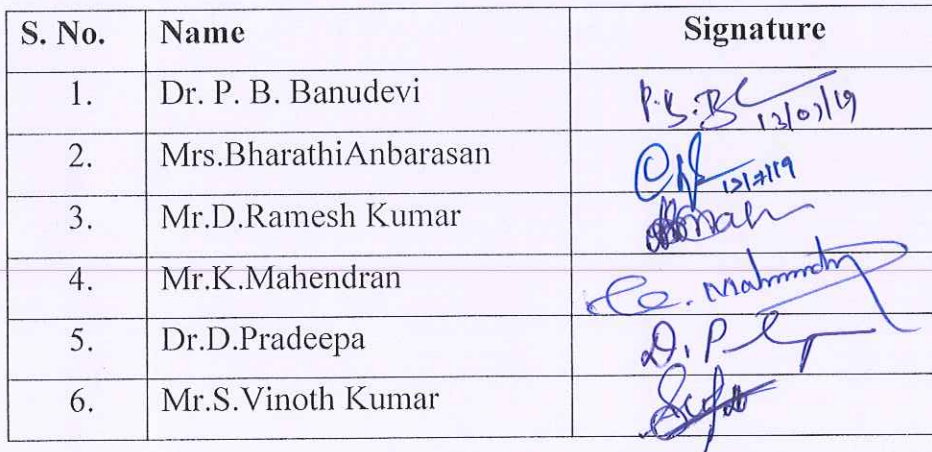 S. No. Name Signature
1. Dr. P. B. Banudevi P.B.B 13/07/19
2. Mrs.BharathiAnbarasan 13/7/19
3. Mr.D.Ramesh Kumar
4. Mr.K.Mahendran
5. Dr.D.Pradeepa D.P
6. Mr.S.Vinoth Kumar